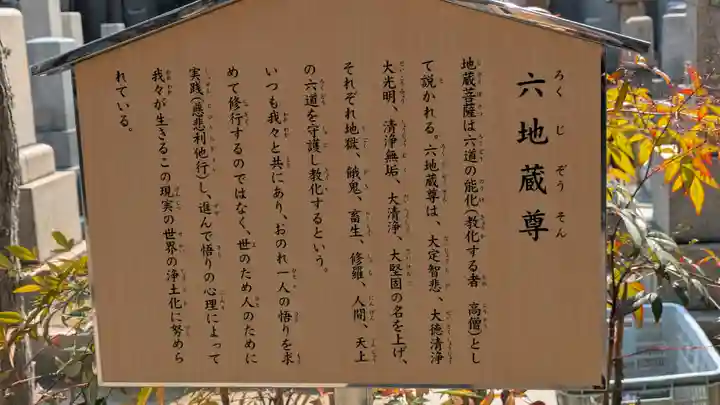 六地蔵尊
ろくじぞうそん
地蔵菩薩は六道の能化(教化する者 高僧)とし
て説かれる。六地蔵尊は、大定智悲、大徳清浄
大光明、清浄無垢、大清浄、大堅固の名を上げ、
それぞれ地獄、餓鬼、畜生、修羅、人間、天上
の六道を守護し教化するという。
いつも我々と共にあり、おのれ一人の悟りを求
めて修行するのではなく、世のため人のために
実践(慈悲利他行)し、進んで悟りの心理によって
我々が生きるこの現実の世界の浄土化に努めら
れている。